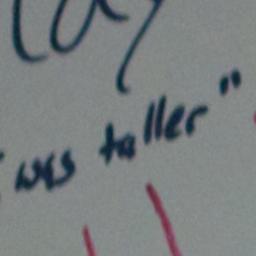 was taller"